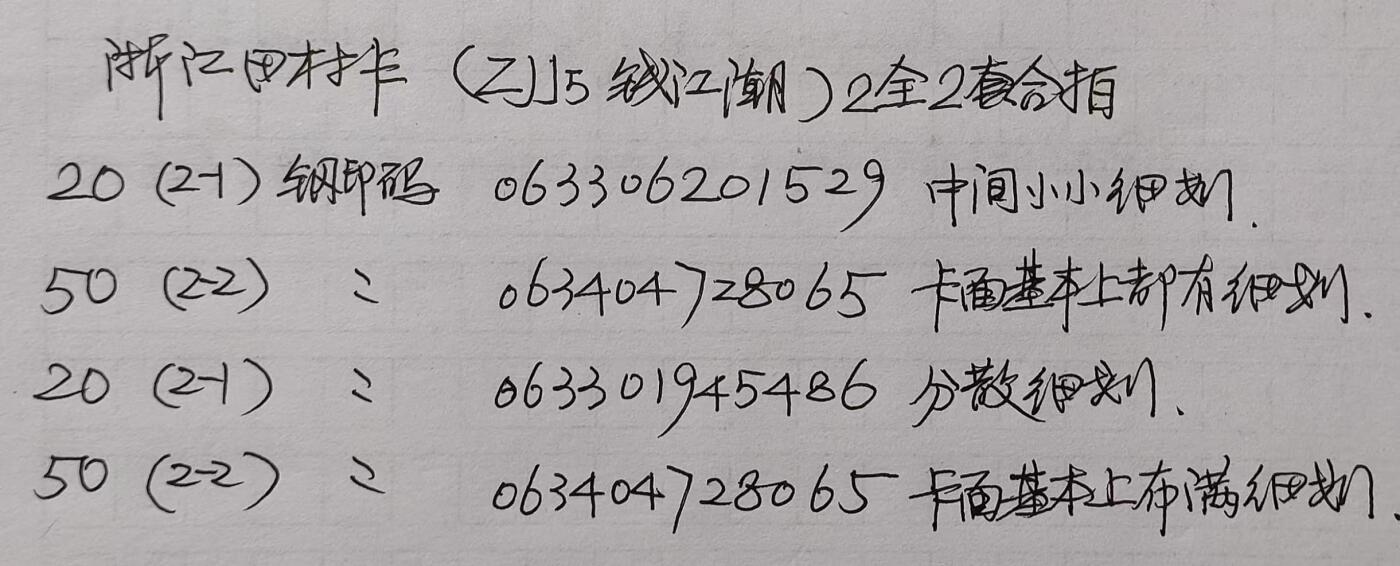 浙江田村卡（ZJJ5钱江潮）2全2套合拍
20（2-1）钢印码 063306201529 中间小小细划.
50（2-2） 〃 063404728065 卡面基本上都有细划.
20（2-1） 〃 063301945486 分散细划、
50（2-2） 〃 063404728065 卡面基本上布满细划.